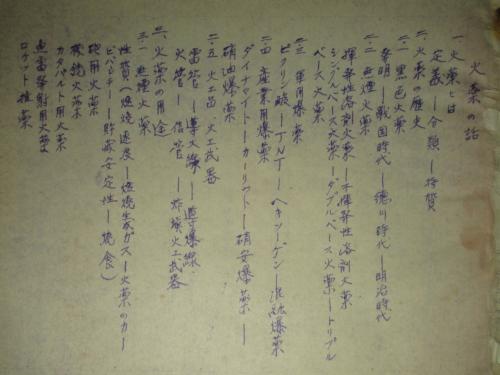 火薬の話
一、火薬とは
定義―分類―特質
二、火薬の歴史
二・一 黒色火薬
発明―戦国時代―徳川時代―明治時代
二・二 無煙火薬
揮発性溶剤火薬―不揮発性溶剤火薬
シングルベース火薬―ダブルベース火薬―トリプル
ベース火薬
二・三 軍用爆薬
ピクリン酸―TNT―ヘキソーゲン―混融爆薬
二・四 産業用爆薬
ダイナマイト―カーリット―硝安爆薬―
硝油爆薬
二・五 火工品、火工武器
雷管―導火線―導爆線
火管―信管―炸填火工武器
三、火薬の用途
三・一 無煙火薬
性質（燃焼速度―燃焼生成ガス―火薬の力―
ビバシチー―貯蔵安定性―焼食）
砲用火薬
機銃火薬
カタパルト用火薬
魚雷発射用火薬
ロケット推薬